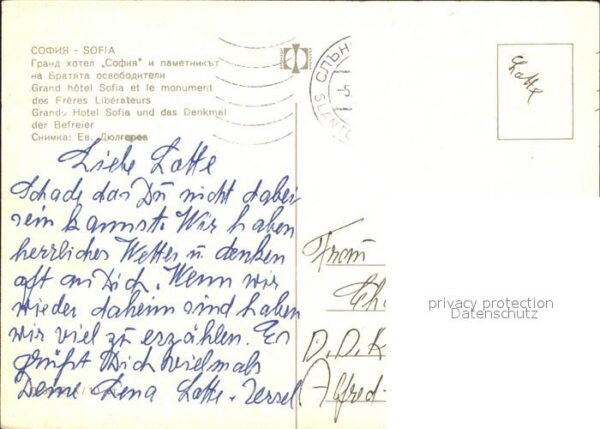 СОФИЯ - SOFIA
Гранд хотел „София" и паметникът
на Братята освободители
Grand hôtel Sofia et le monument
des Frères Libérateurs
Grand Hotel Sofia und das Denkmal
der Befreier
Снимка: Ев. Дюлгеров
СЛЪН
SLANT
-5
Lotte
Liebe Lotte
Schade das Du nicht dabei
sein kannst. Wir haben
herrliches Wetter u denken
oft an Dich. Wenn wir
wieder daheim sind haben
wir viel zu erzählen. Es
grüßt Dich vielmals
Deine Lena Lotte
From
D.D.R
Alfred-
privacy protection
Datenschutz